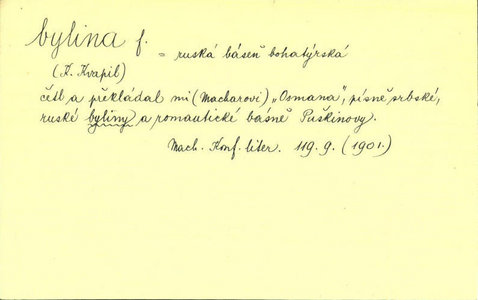 bylina f.
= ruská báseň bohatýrská
(K. Kvapil)
četl a překládal mi (Macharovi) „Osmana", písně srbské,
ruské byliny a romantické básně Puškinovy.
Mach. Konf. liter. 119. 9. (1901.)